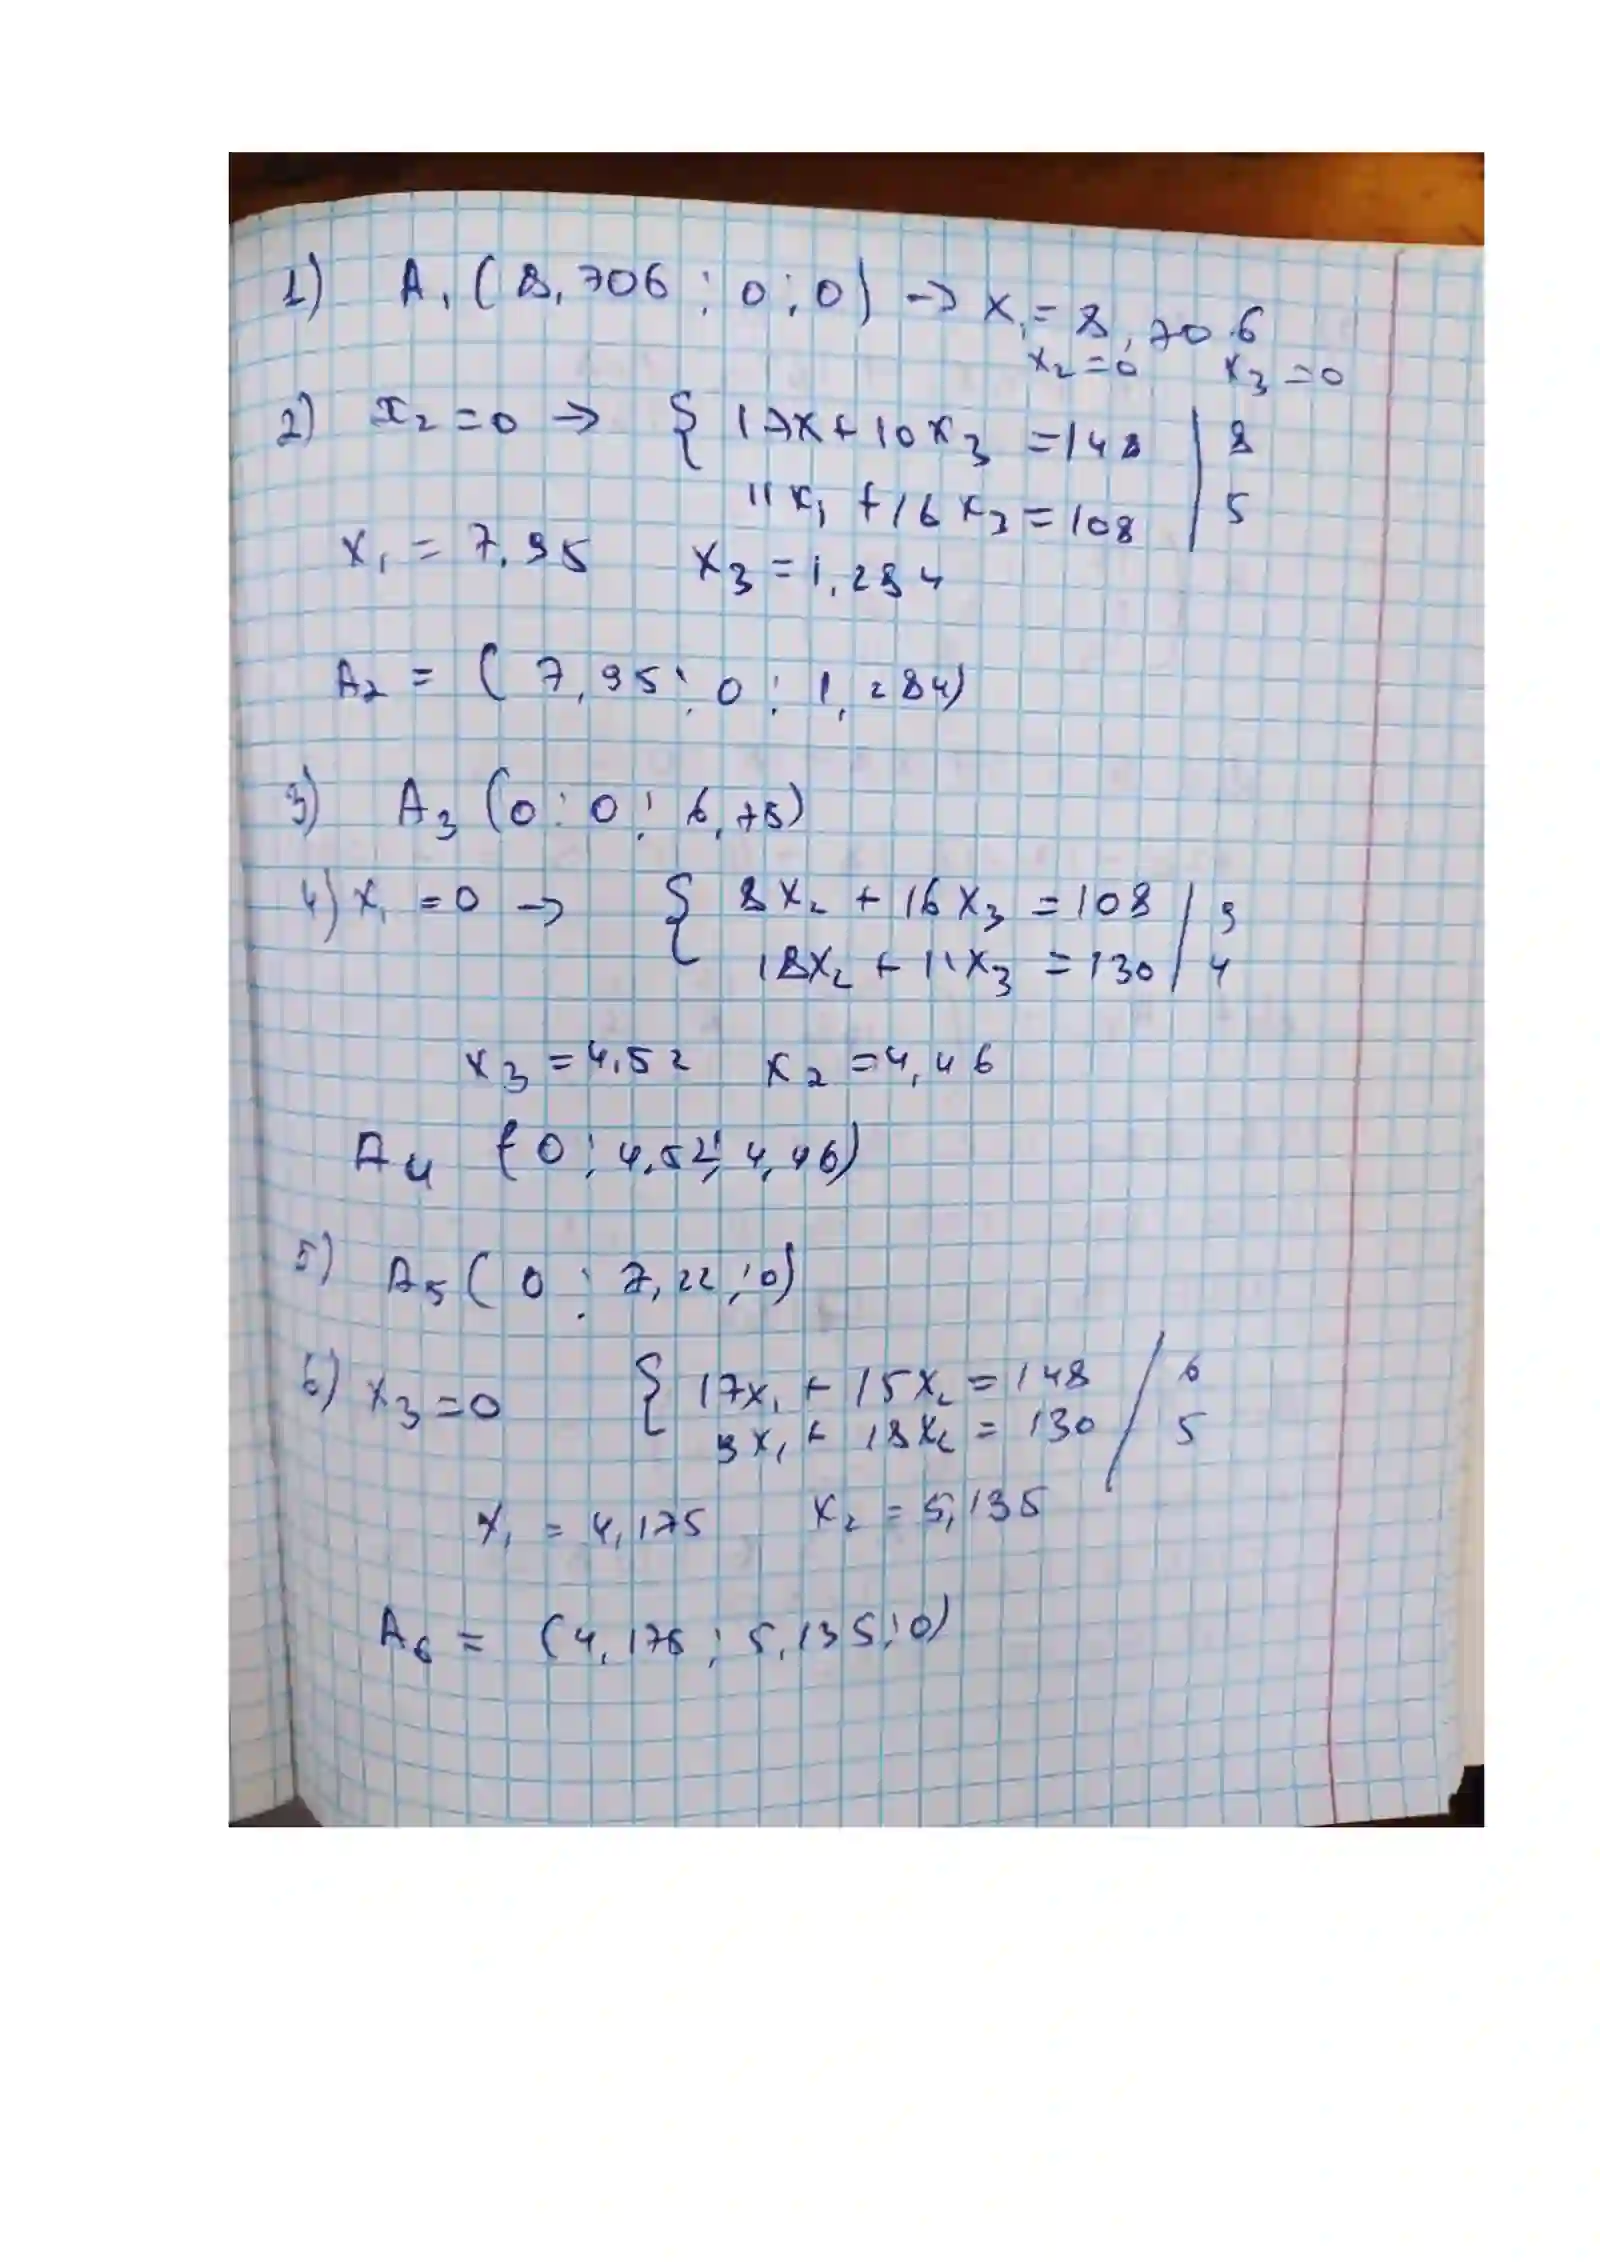 1) A₁ (8,706 ; 0 ; 0) → x₁ = 8,706
x₂ = 0 x₃ = 0
2) x₂ = 0 → { 17x + 10x₃ = 148 | 8
11x₁ + 16x₃ = 108 | 5
x₁ = 7,95 x₃ = 1,284
A₂ = ( 7,95 ; 0 ; 1,284)
3) A₃ (0 ; 0 ; 6,75)
4) x₁ = 0 → { 8x₂ + 16x₃ = 108 | 9
18x₂ + 11x₃ = 130 | 4
x₃ = 4,52 x₂ = 4,46
A₄ (0 ; 4,52 ; 4,46)
5) A₅ ( 0 ; 7,22 ; 0)
6) x₃ = 0 { 17x₁ + 15x₂ = 148 / 6
9x₁ + 18x₂ = 130 / 5
x₁ = 4,175 x₂ = 5,135
A₆ = (4,175 ; 5,135 ; 0)